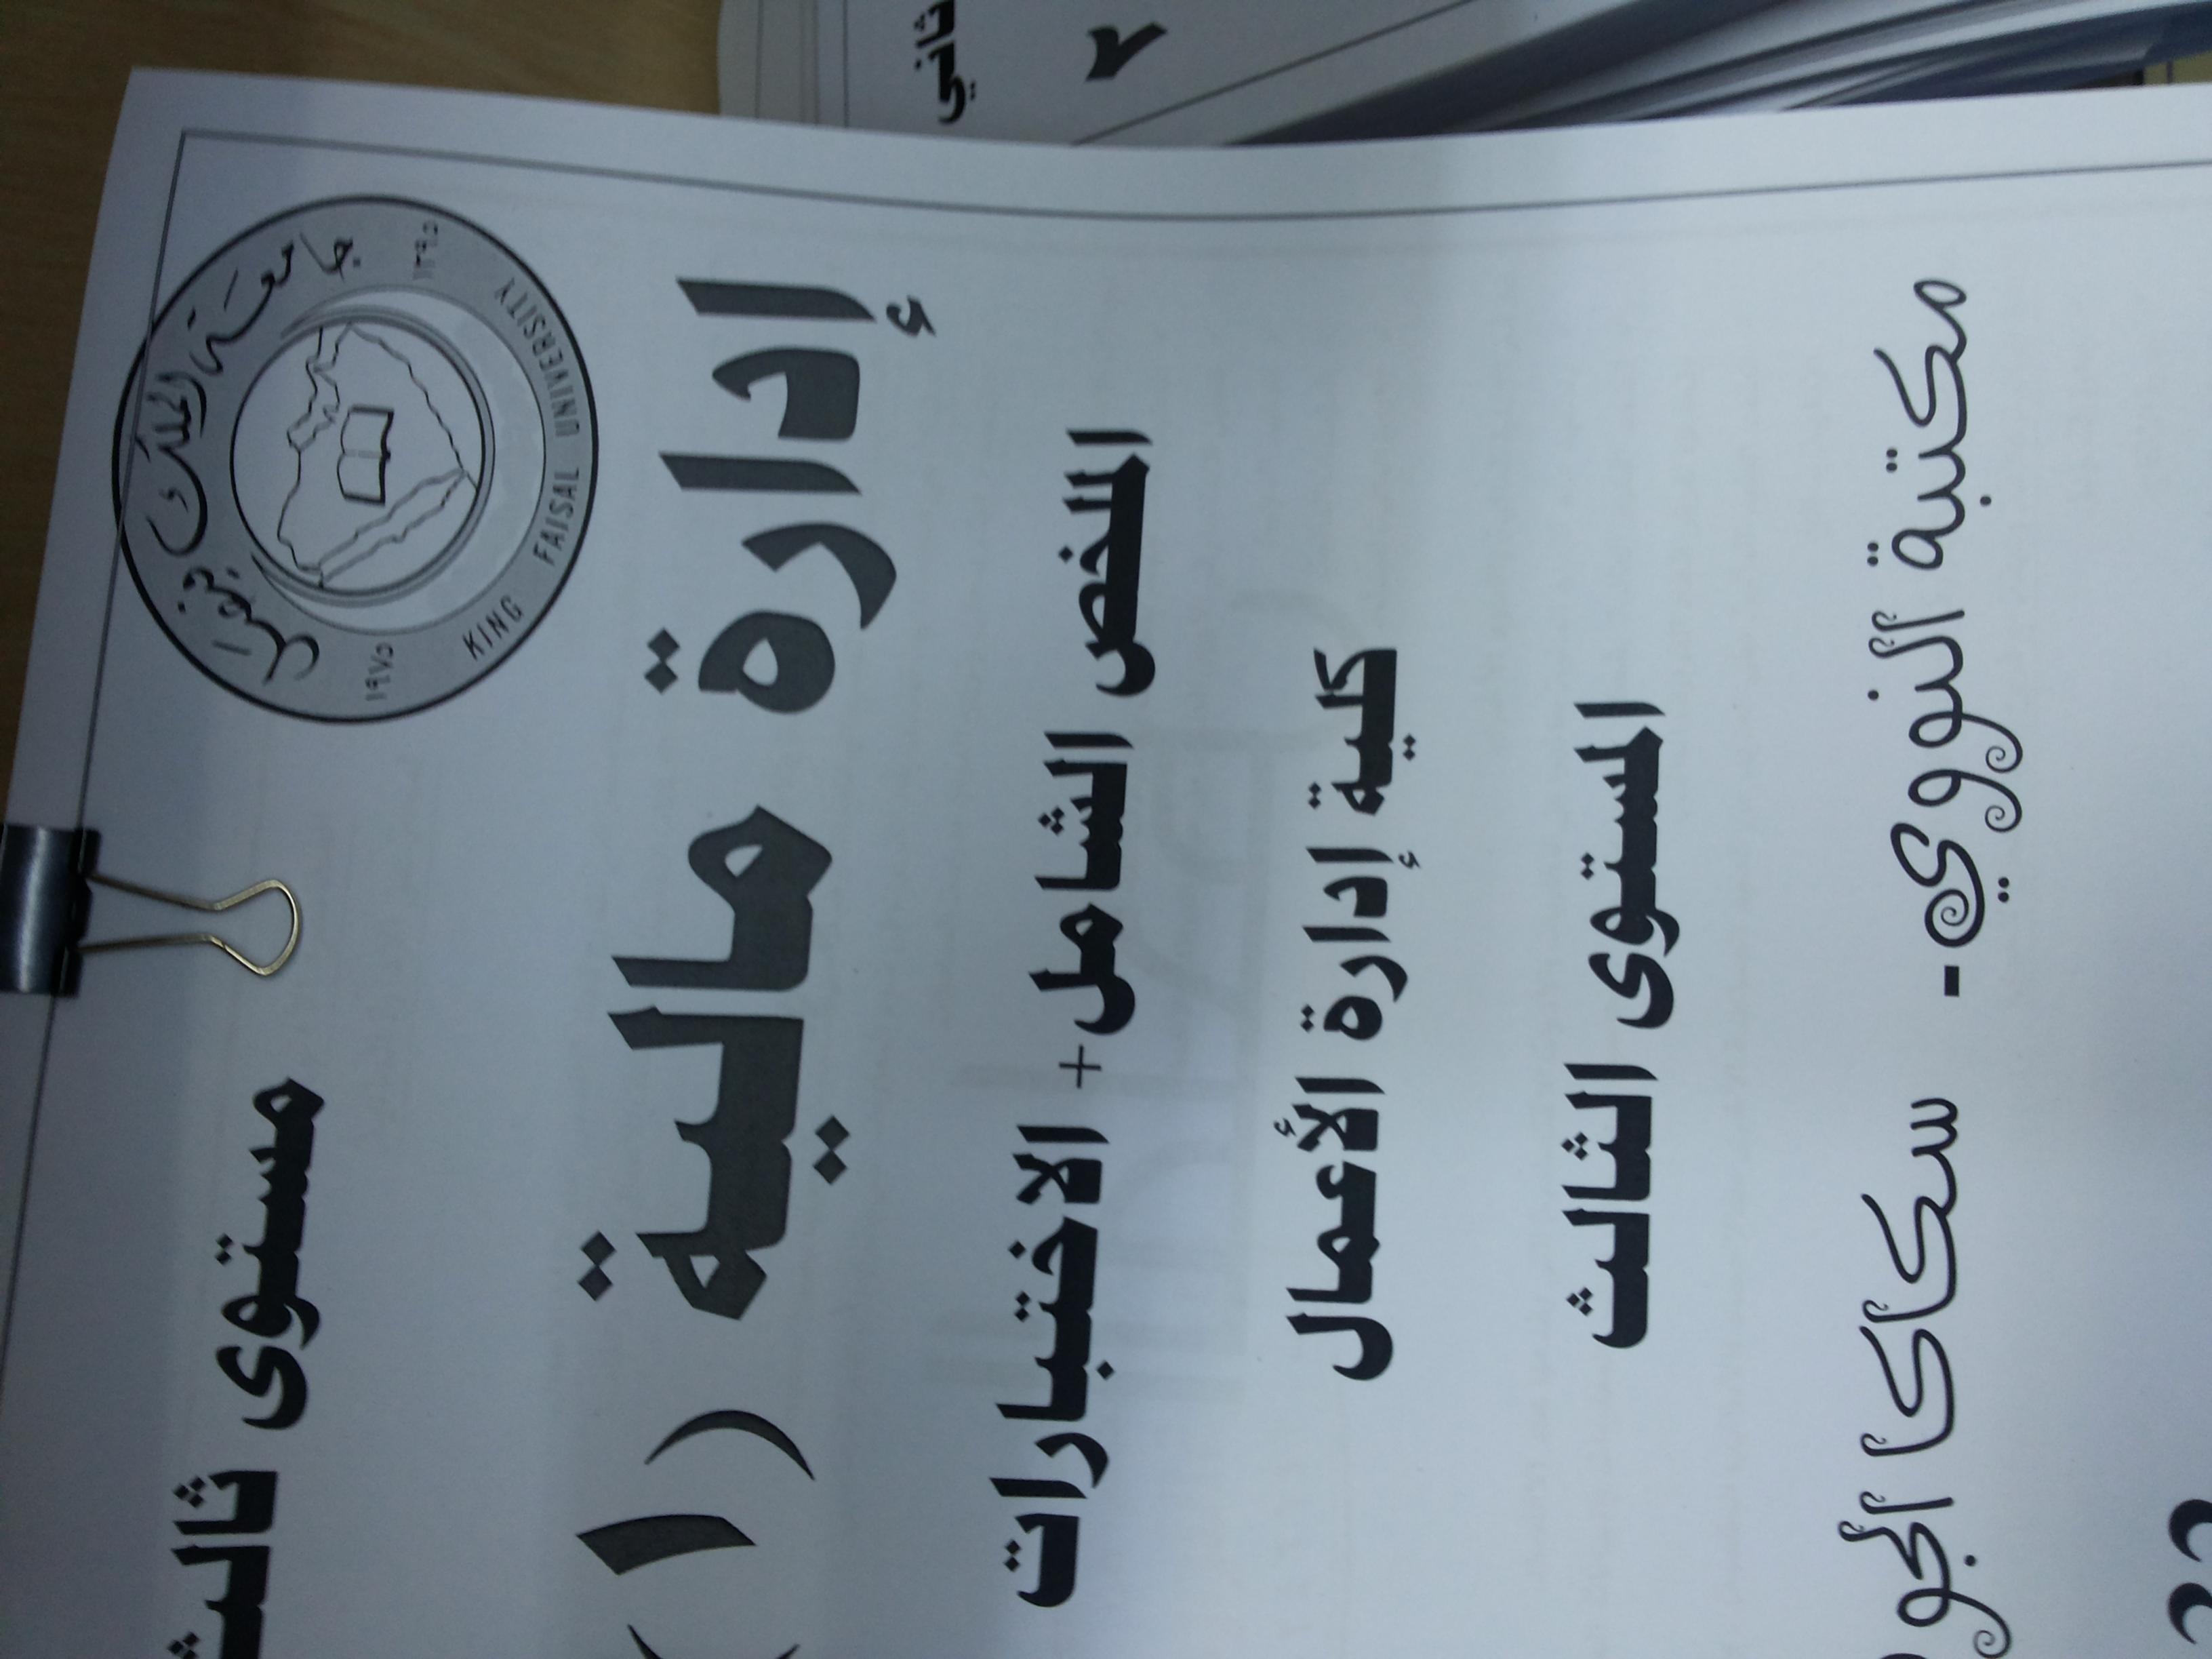 ثاني
جامعة الملك فيصل
١٣٩٥
١٩٧٥
KING FAISAL UNIVERSITY
مستوى ثالث
إدارة مالية (١)
الملخص الشامل+ الاختبارات
كلية إدارة الأعمال
المستوى الثالث
مكتبة النووي - سكاكا